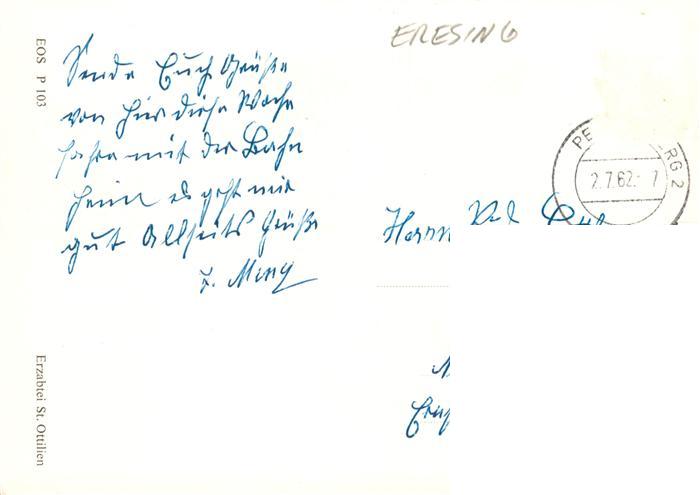 ERESING
Sende Euch Grüße
von hier diese Woche
fahre mit der Bahn
heim es geht mir
gut Allseits Grüße
EOS P 103
Erzabtei St. Ottilien
PE
RG 2
2.7.62.- 7
Herrn